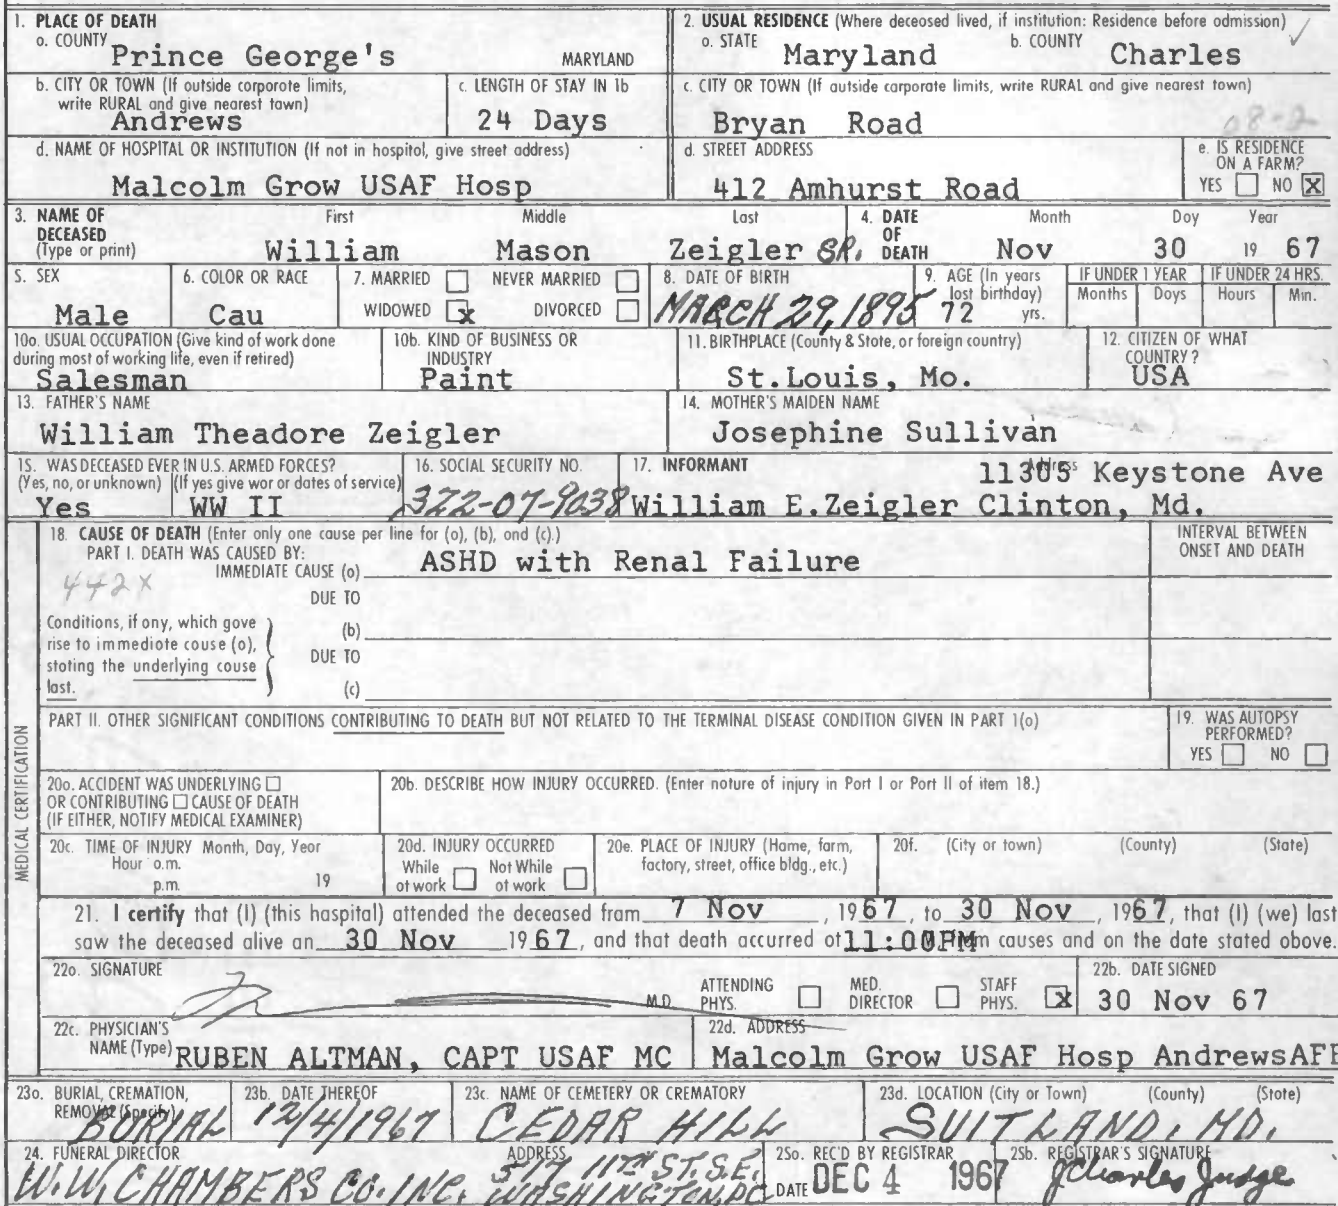 1. PLACE OF DEATH
a. COUNTY Prince George's MARYLAND
2. USUAL RESIDENCE (Where deceased lived, if institution: Residence before admission)
a. STATE Maryland b. COUNTY Charles
b. CITY OR TOWN (If outside corporate limits, write RURAL and give nearest town)
Andrews
c. LENGTH OF STAY IN 1b
24 Days
c. CITY OR TOWN (If outside corporate limits, write RURAL and give nearest town)
Bryan Road
08-2
d. NAME OF HOSPITAL OR INSTITUTION (If not in hospital, give street address)
Malcolm Grow USAF Hosp
d. STREET ADDRESS
412 Amhurst Road
e. IS RESIDENCE ON A FARM?
YES NO X
3. NAME OF DECEASED (Type or print)
First Middle Last
William Mason Zeigler SR.
4. DATE OF DEATH
Month Day Year
Nov 30 19 67
5. SEX
Male
6. COLOR OR RACE
Cau
7. MARRIED NEVER MARRIED
WIDOWED x DIVORCED
8. DATE OF BIRTH
MARCH 29, 1895
9. AGE (In years last birthday)
72 yrs.
IF UNDER 1 YEAR
Months Days
IF UNDER 24 HRS.
Hours Min.
10a. USUAL OCCUPATION (Give kind of work done during most of working life, even if retired)
Salesman
10b. KIND OF BUSINESS OR INDUSTRY
Paint
11. BIRTHPLACE (County & State, or foreign country)
St.Louis, Mo.
12. CITIZEN OF WHAT COUNTRY?
USA
13. FATHER'S NAME
William Theadore Zeigler
14. MOTHER'S MAIDEN NAME
Josephine Sullivan
15. WAS DECEASED EVER IN U.S. ARMED FORCES?
(Yes, no, or unknown) (If yes give war or dates of service)
Yes WW II
16. SOCIAL SECURITY NO.
322-07-9038
17. INFORMANT Address
11305 Keystone Ave
William E.Zeigler Clinton, Md.
MEDICAL CERTIFICATION
18. CAUSE OF DEATH (Enter only one cause per line for (a), (b), and (c).)
PART I. DEATH WAS CAUSED BY:
IMMEDIATE CAUSE (a) ASHD with Renal Failure
INTERVAL BETWEEN ONSET AND DEATH
442X
DUE TO
Conditions, if any, which gave rise to immediate cause (a), stating the underlying cause last.
(b)
DUE TO
(c)
PART II. OTHER SIGNIFICANT CONDITIONS CONTRIBUTING TO DEATH BUT NOT RELATED TO THE TERMINAL DISEASE CONDITION GIVEN IN PART 1(a)
19. WAS AUTOPSY PERFORMED?
YES NO
20a. ACCIDENT WAS UNDERLYING
OR CONTRIBUTING CAUSE OF DEATH
(IF EITHER, NOTIFY MEDICAL EXAMINER)
20b. DESCRIBE HOW INJURY OCCURRED. (Enter nature of injury in Part I or Part II of item 18.)
20c. TIME OF INJURY Month, Day, Year
Hour a.m.
p.m. 19
20d. INJURY OCCURRED
While at work Not While at work
20e. PLACE OF INJURY (Home, farm, factory, street, office bldg., etc.)
20f. (City or town) (County) (State)
21. I certify that (I) (this hospital) attended the deceased from 7 Nov , 1967, to 30 Nov , 1967, that (I) (we) last
saw the deceased alive on 30 Nov 1967, and that death occurred at 11:00PM from causes and on the date stated above.
22a. SIGNATURE
M.D.
ATTENDING PHYS. MED. DIRECTOR STAFF PHYS. x
22b. DATE SIGNED
30 Nov 67
22c. PHYSICIAN'S NAME (Type) RUBEN ALTMAN, CAPT USAF MC
22d. ADDRESS
Malcolm Grow USAF Hosp AndrewsAFB
23a. BURIAL, CREMATION, REMOVAL (Specify)
BURIAL
23b. DATE THEREOF
12/4/1967
23c. NAME OF CEMETERY OR CREMATORY
CEDAR HILL
23d. LOCATION (City or Town) (County) (State)
SUITLAND, MD.
24. FUNERAL DIRECTOR ADDRESS
W.W. CHAMBERS CO. INC. 517 11TH ST. S.E. WASHINGTON, DC
25a. REC'D BY REGISTRAR
DATE DEC 4 1967
25b. REGISTRAR'S SIGNATURE
J Charles Judge